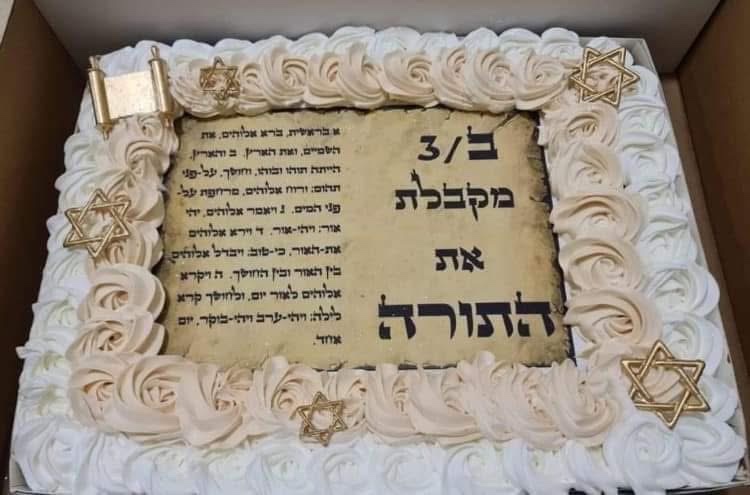 ב/3
מקבלת
את
התורה
א בראשית, ברא אלוהים, את
השמיים, ואת הארץ. ב והארץ,
הייתה תוהו ובוהו, וחושך, על-פני
תהום; ורוח אלוהים, מרחפת על-
פני המים. ג ויאמר אלוהים, יהי
אור; ויהי-אור. ד וירא אלוהים
את-האור, כי-טוב; ויבדל אלוהים,
בין האור ובין החושך. ה ויקרא
אלוהים לאור יום, ולחושך קרא
לילה; ויהי-ערב ויהי-בוקר, יום
אחד.